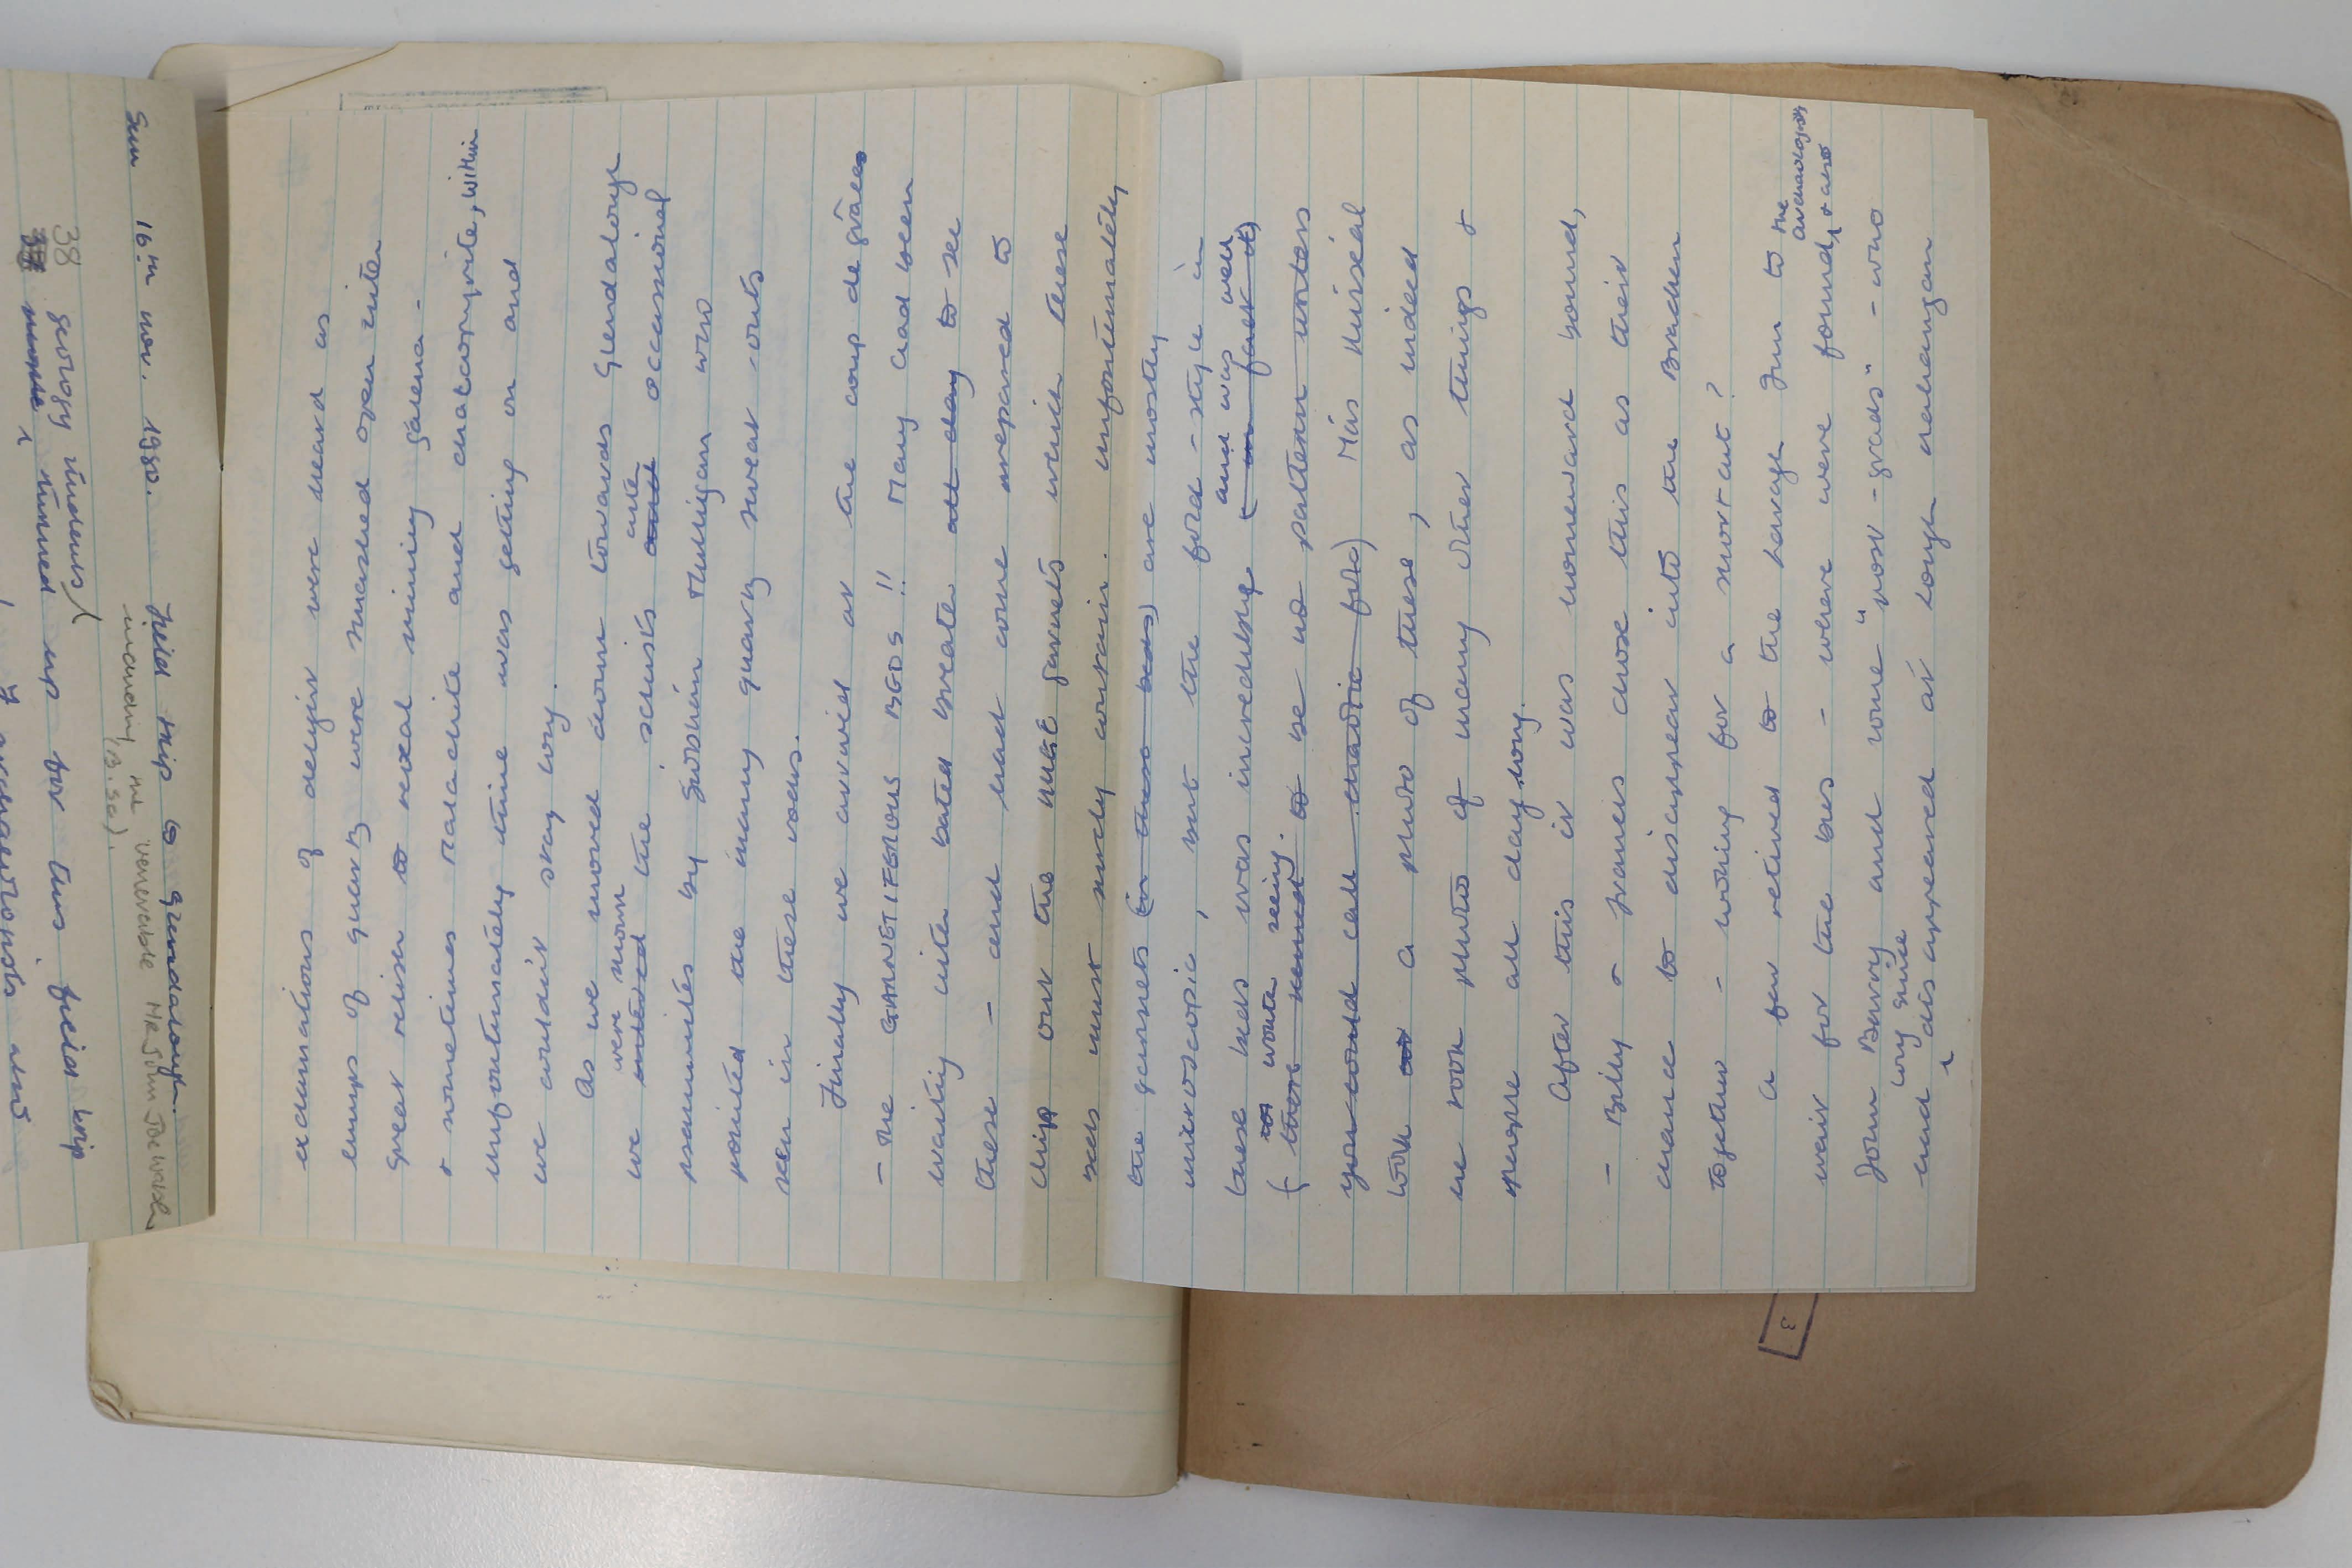 Sun 16th Nov. 1980. Field trip to Glendalough.
including the venerable Mr John Joe Walsh
(B.Sc.).
38 geology students
turned up for this field trip
exclamations of delight were heard as
lumps of quartz were smashed open with
great relish to reveal mining galena -
& sometimes malachite and chalcopyrite, within
unfortunately time was getting on and
we couldn't stay long.
As we moved down towards Glendalough
we were shown the schists and the occasional
psammites by Siobhán Mulligan who
pointed the many quartz sweat-outs
seen in these rocks.
Finally we arrived at the coup de grâce
- THE GARNETIFEROUS BEDS !! Many had been
waiting with bated breath all day to see
these - and had come prepared to
chip out the HUGE garnets which these
beds must surely contain. Unfortunately
the garnets (in these beds) are mostly
microscopic, but the fold-style in
these beds was incredible and was well
(in fact it
worth seeing.
( there seemed to be no pattern unless
you could call chaotic fold) Más Muiseál
took a photo of these, as indeed
he took photo of many other things &
people all day long.
After this it was homeward bound,
- Billy & James chose this as their
chance to disappear into the Bracken
together - looking for a short cut?
A few retired to the Lough Inn to
wait for the bus - where were found, the archaeologists & also
John Barry and some "post-grads" - who
had long since disappeared at Lough Nahangan
3